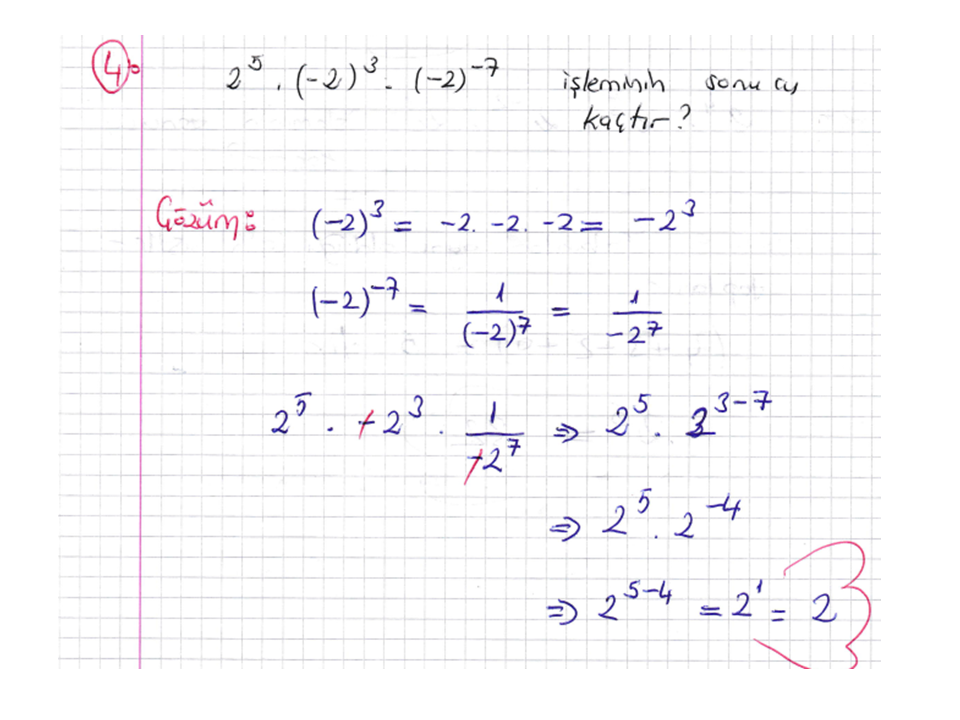 4. 2⁵ . (-2)³ . (-2)⁻⁷ işleminin sonucu
kaçtır?
Çözüm: (-2)³ = -2. -2. -2 = -2³
(-2)⁻⁷ = 1/(-2)⁷ = 1/-2⁷
2⁵ . -2³ . 1/-2⁷ ⇒ 2⁵ . 2³⁻⁷
⇒ 2⁵ . 2⁻⁴
⇒ 2⁵⁻⁴ = 2¹ = 2